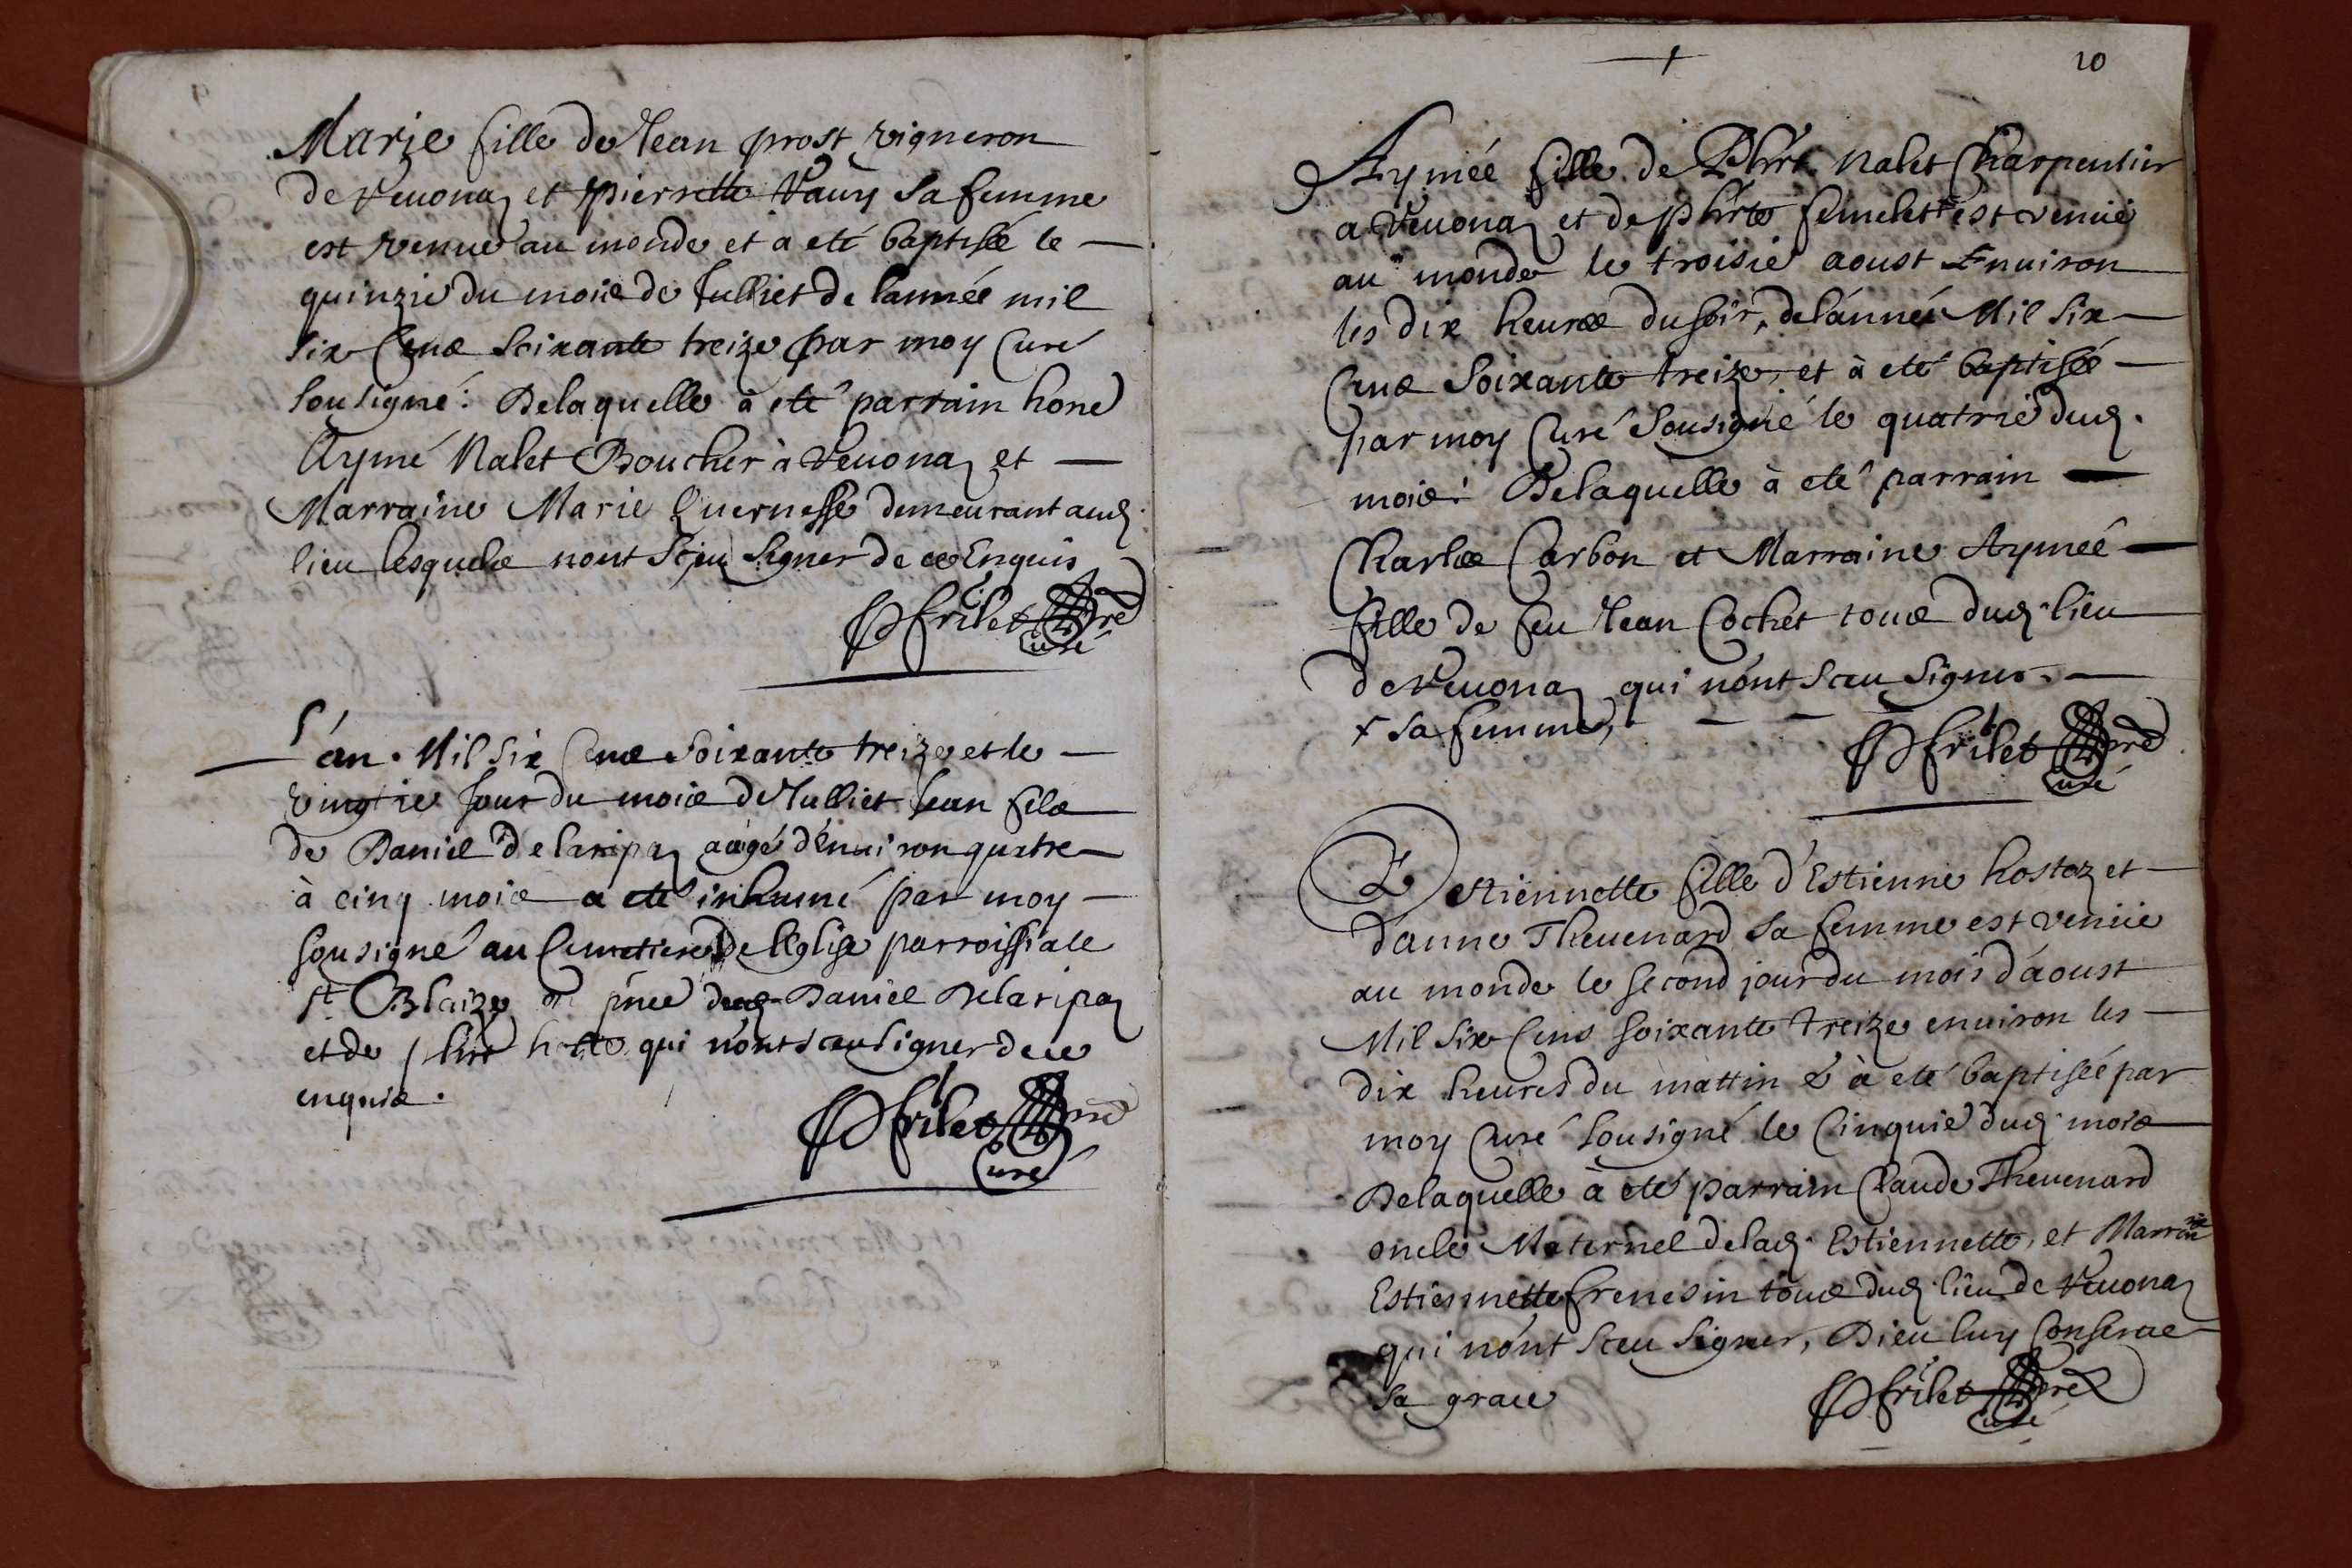 Marie fille de Jean prost vigneron
de Veuonaz et pierrette Vauy sa femme
est venue au monde et a eté baptisée le
quinzie du mois de Julliet de lannée mil
six Cens soixante treize par moy Curé
sousigné: Delaquelle à eté parrain hone
Aymé Nalet Boucher à Veuonaz et
Marraine Marie Quernesse demeurant aud.
lieu lesquels nont sceu signer de ce Enquis
P frilet pre
Curé
L'an. Mil six Cens soixante treize et le
vingtie Jour du mois de Julliet Jean fils
de Daniel Delaripaz aagé d'enuiron quatre
à cinq mois a eté inhumé par moy
sousigné au Cemetiere De lEglise parroissiale
St. Blaize en pnce dud. Daniel Delaripaz
et de qui n'ont sceu signer de ce
enquis.
P frilet pre
Curé
10
Aymée fille de Phrt. Nalet Charpentier
a Veuonaz et de phrte femelet + est venüe
au monde le troisie aoust Enuiron
les dix heures du soir, de lannée Mil six
Cens soixante treize, et à eté baptisée
par moy Curé Sousigné le quatrie dud.
mois: Delaquelle à eté parrain
Charles Carbon et Marraine Aymée
fille de feu Jean Cochet tous dud. lieu
de Veuonaz qui n'ont sceu signer.
+ sa femme,
P frilet pre
Curé
Estiennette fille d'Estienne hostoz et
d'anne Theuenard sa femme est venüe
au monde le second jour du mois d'aoust
Mil six Cens soixante treize enuiron les
dix heures du mattin & à eté baptisée par
moy Curé sousigné le Cinquie dud. mois
Delaquelle à eté parrain Claude Theuenard
oncle Maternel delad. Estiennette, et Marraine
Estiennette frenesin tous dud. lieu de Veuonaz
qui n'ont sceu signer, Dieu luy Conserue
sa grace
P frilet pre
Curé